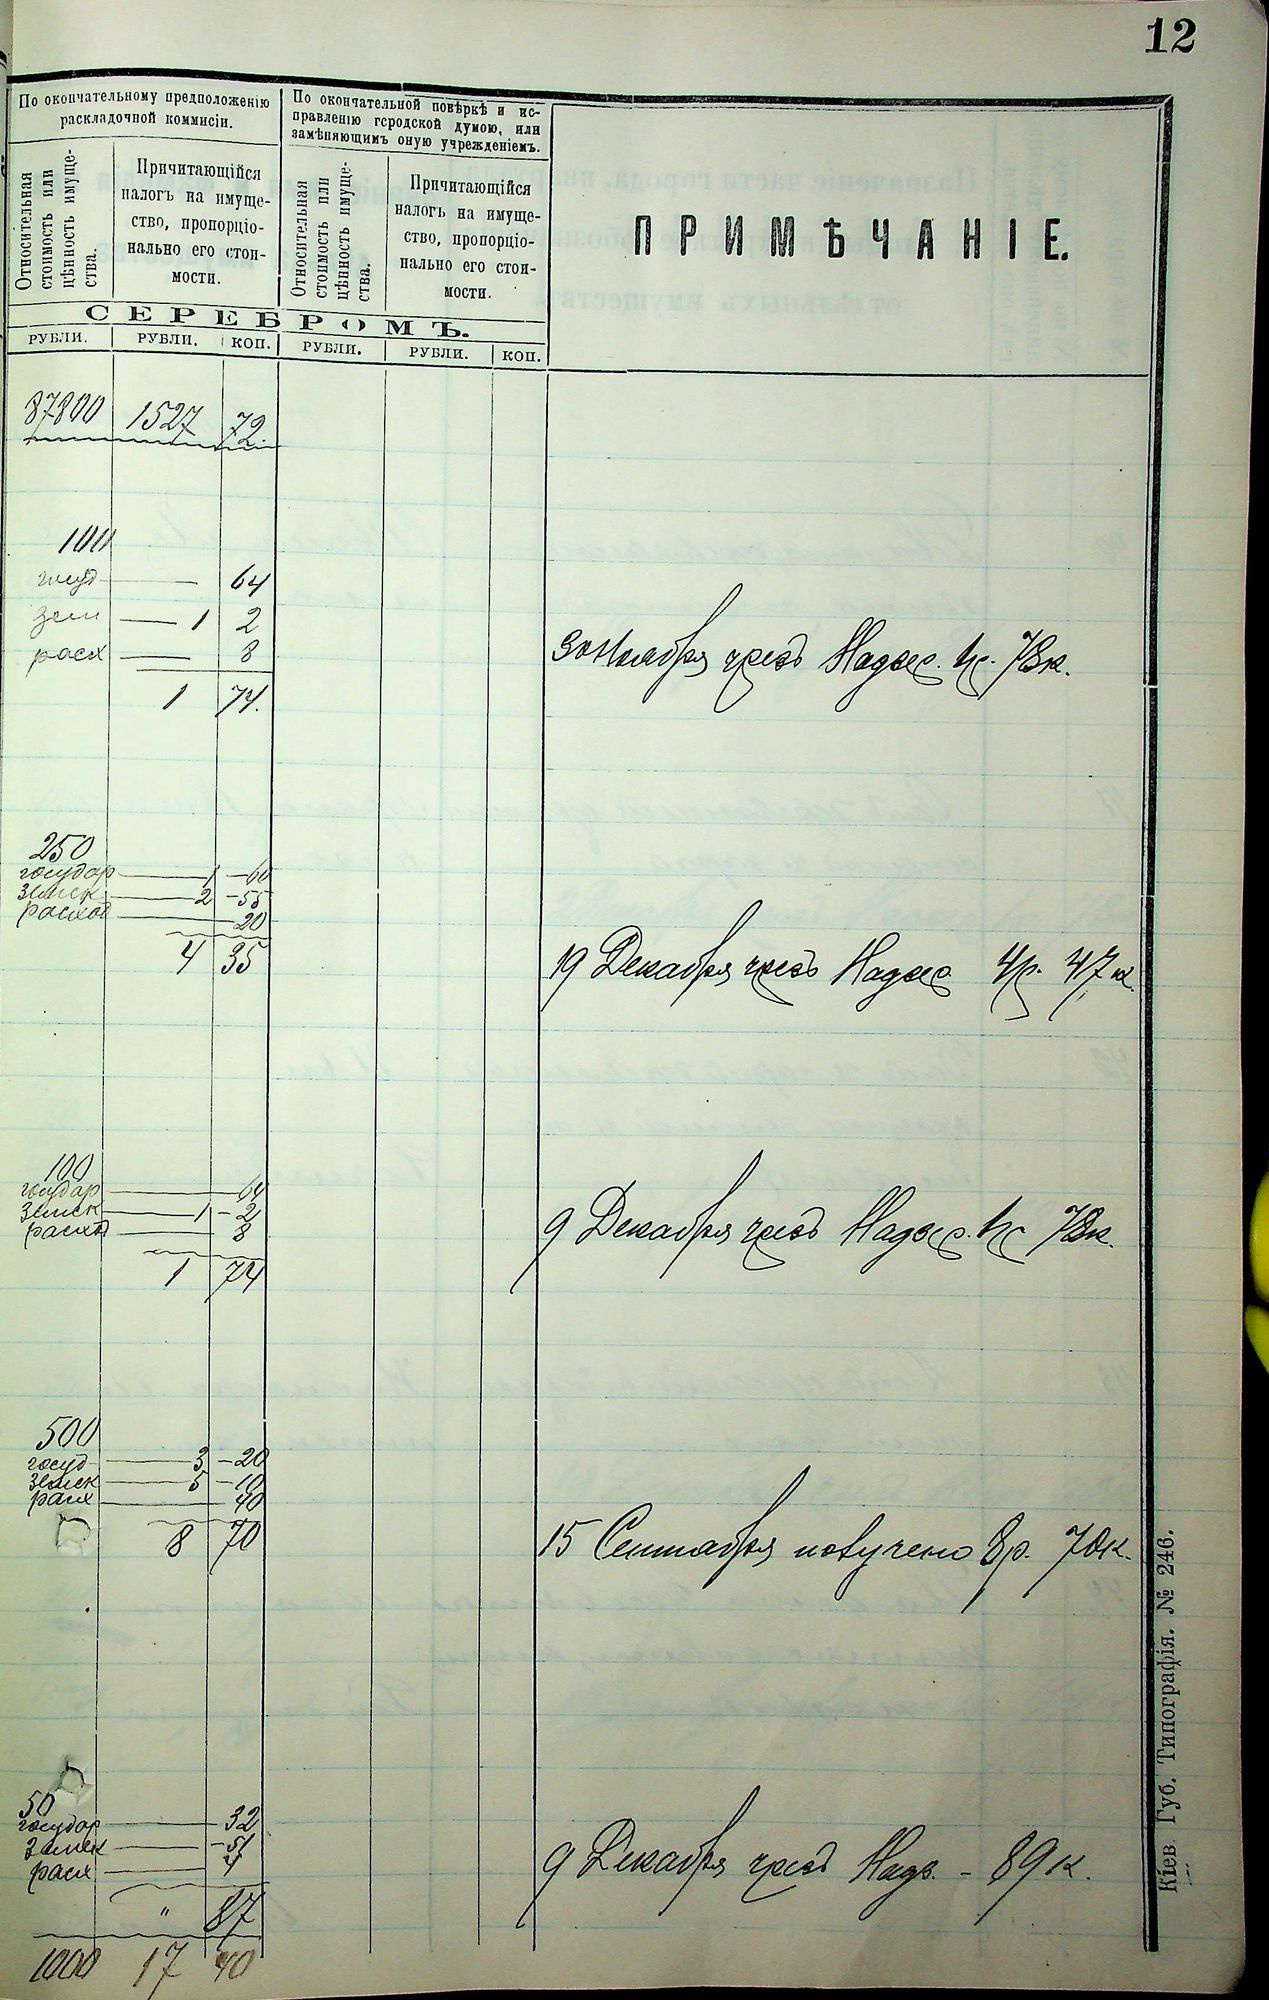 12
По окончательному предположенію
раскладочной коммисіи.
По окончательной повѣркѣ и ис-
правленію городской думою, или
замѣняющимъ оную учрежденіемъ.
Относительная
стоимость или
цѣнность имуще-
ства.
Причитающійся
налогъ на имуще-
ство, пропорціо-
нально его стои-
мости.
Относительная
стоимость или
цѣнность имуще-
ства.
Причитающійся
налогъ на имуще-
ство, пропорціо-
нально его стои-
мости.
ПРИМѢЧАНІЕ.
СЕРЕБРОМЪ.
РУБЛИ. РУБЛИ. КОП. РУБЛИ. РУБЛИ. КОП.
87800 1527 72.
100
госуд — 64
зем — 1 2
расх — 8
1 74.
30 Ноября чрезъ Надзс. 1р. 78к.
250
государ — 1 — 60
земск — 2 — 55
расход — 20
4 35
19 Декабря чрезъ Надзс 4р. 47к.
100
государ — 64
земск — 1 — 2
расход — 8
1 74
9 Декабря чрезъ Надзс. 1р 78к.
500
госуд — 3 — 20
земск — 5 — 10
расх — 40
8 70
15 Сентября получено 8р. 70к.
50
государ — 32
земск — 51
расх — 4
" 87
9 Декабря чрезъ Надз. - 89к.
1000 17 40
Кіев. Губ. Типографія. № 246.